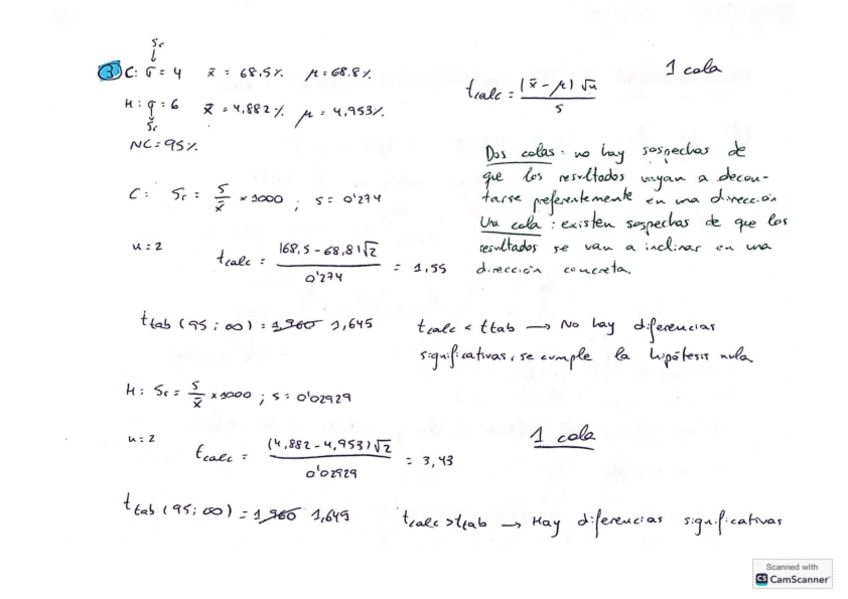 Sr
↓
③ C: σ = 4 x̄ = 68.5% μ = 68.8%. 1 cola
tcalc = |x̄ - μ| √n / s
H: σ = 6 x̄ = 4,882% μ = 4,953%.
↓
Sr
NC = 95%
Dos colas: no hay sospechas de
que los resultados vayan a decan-
tarse preferentemente en una dirección
Una cola: existen sospechas de que los
resultados se van a inclinar en una
dirección concreta.
C: Sr = s/x̄ × 1000 ; s = 0'274
n = 2 tcalc = |68,5 - 68,8| √2 / 0'274 = 1,55
ttab (95; ∞) = 1,960 1,645 tcalc < ttab → No hay diferencias
significativas, se cumple la hipótesis nula
H: Sr = s/x̄ × 1000 ; s = 0'02929
n = 2 tcalc = (4,882 - 4,953) √2 / 0'02929 = 3,43 1 cola
ttab (95; ∞) = 1,960 1,645 tcalc > ttab → Hay diferencias significativas
Scanned with
CS CamScanner